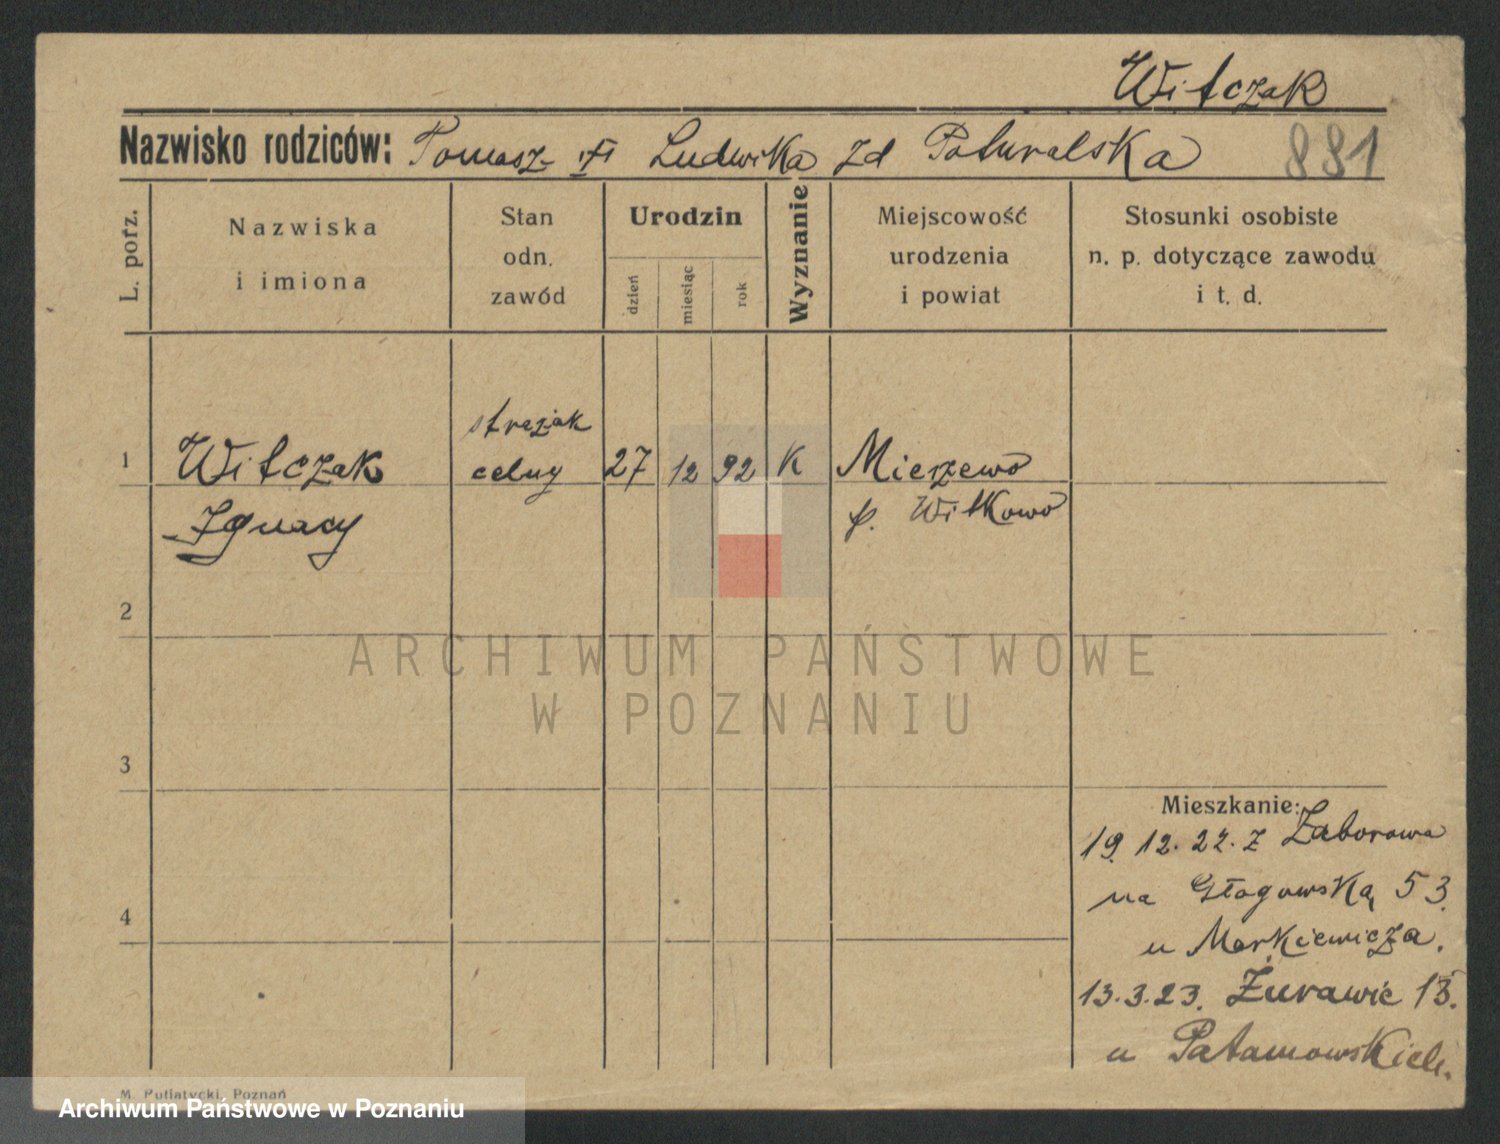 Witczak
Nazwisko rodziców: Tomasz Ludwika zd Poturalska 881
L. porz.
Nazwiska
i imiona
Stan
odn.
zawód
Urodzin
dzień
miesiąc
rok
Wyznanie
Miejscowość
urodzenia
i powiat
Stosunki osobiste
n. p. dotyczące zawodu
i t. d.
1
Witczak
Ignacy
strażak
celny
27 12 92 K
Mierzewo
p. Witkowo
2
3
4
Mieszkanie:
19. 12. 22. z Zaborowa
na Głogowską 53.
u Markiewicza.
13. 3. 23. Żurawie 13.
u
ARCHIWUM PAŃSTWOWE
W POZNANIU
M. Putiatycki, Poznań
Archiwum Państwowe w Poznaniu